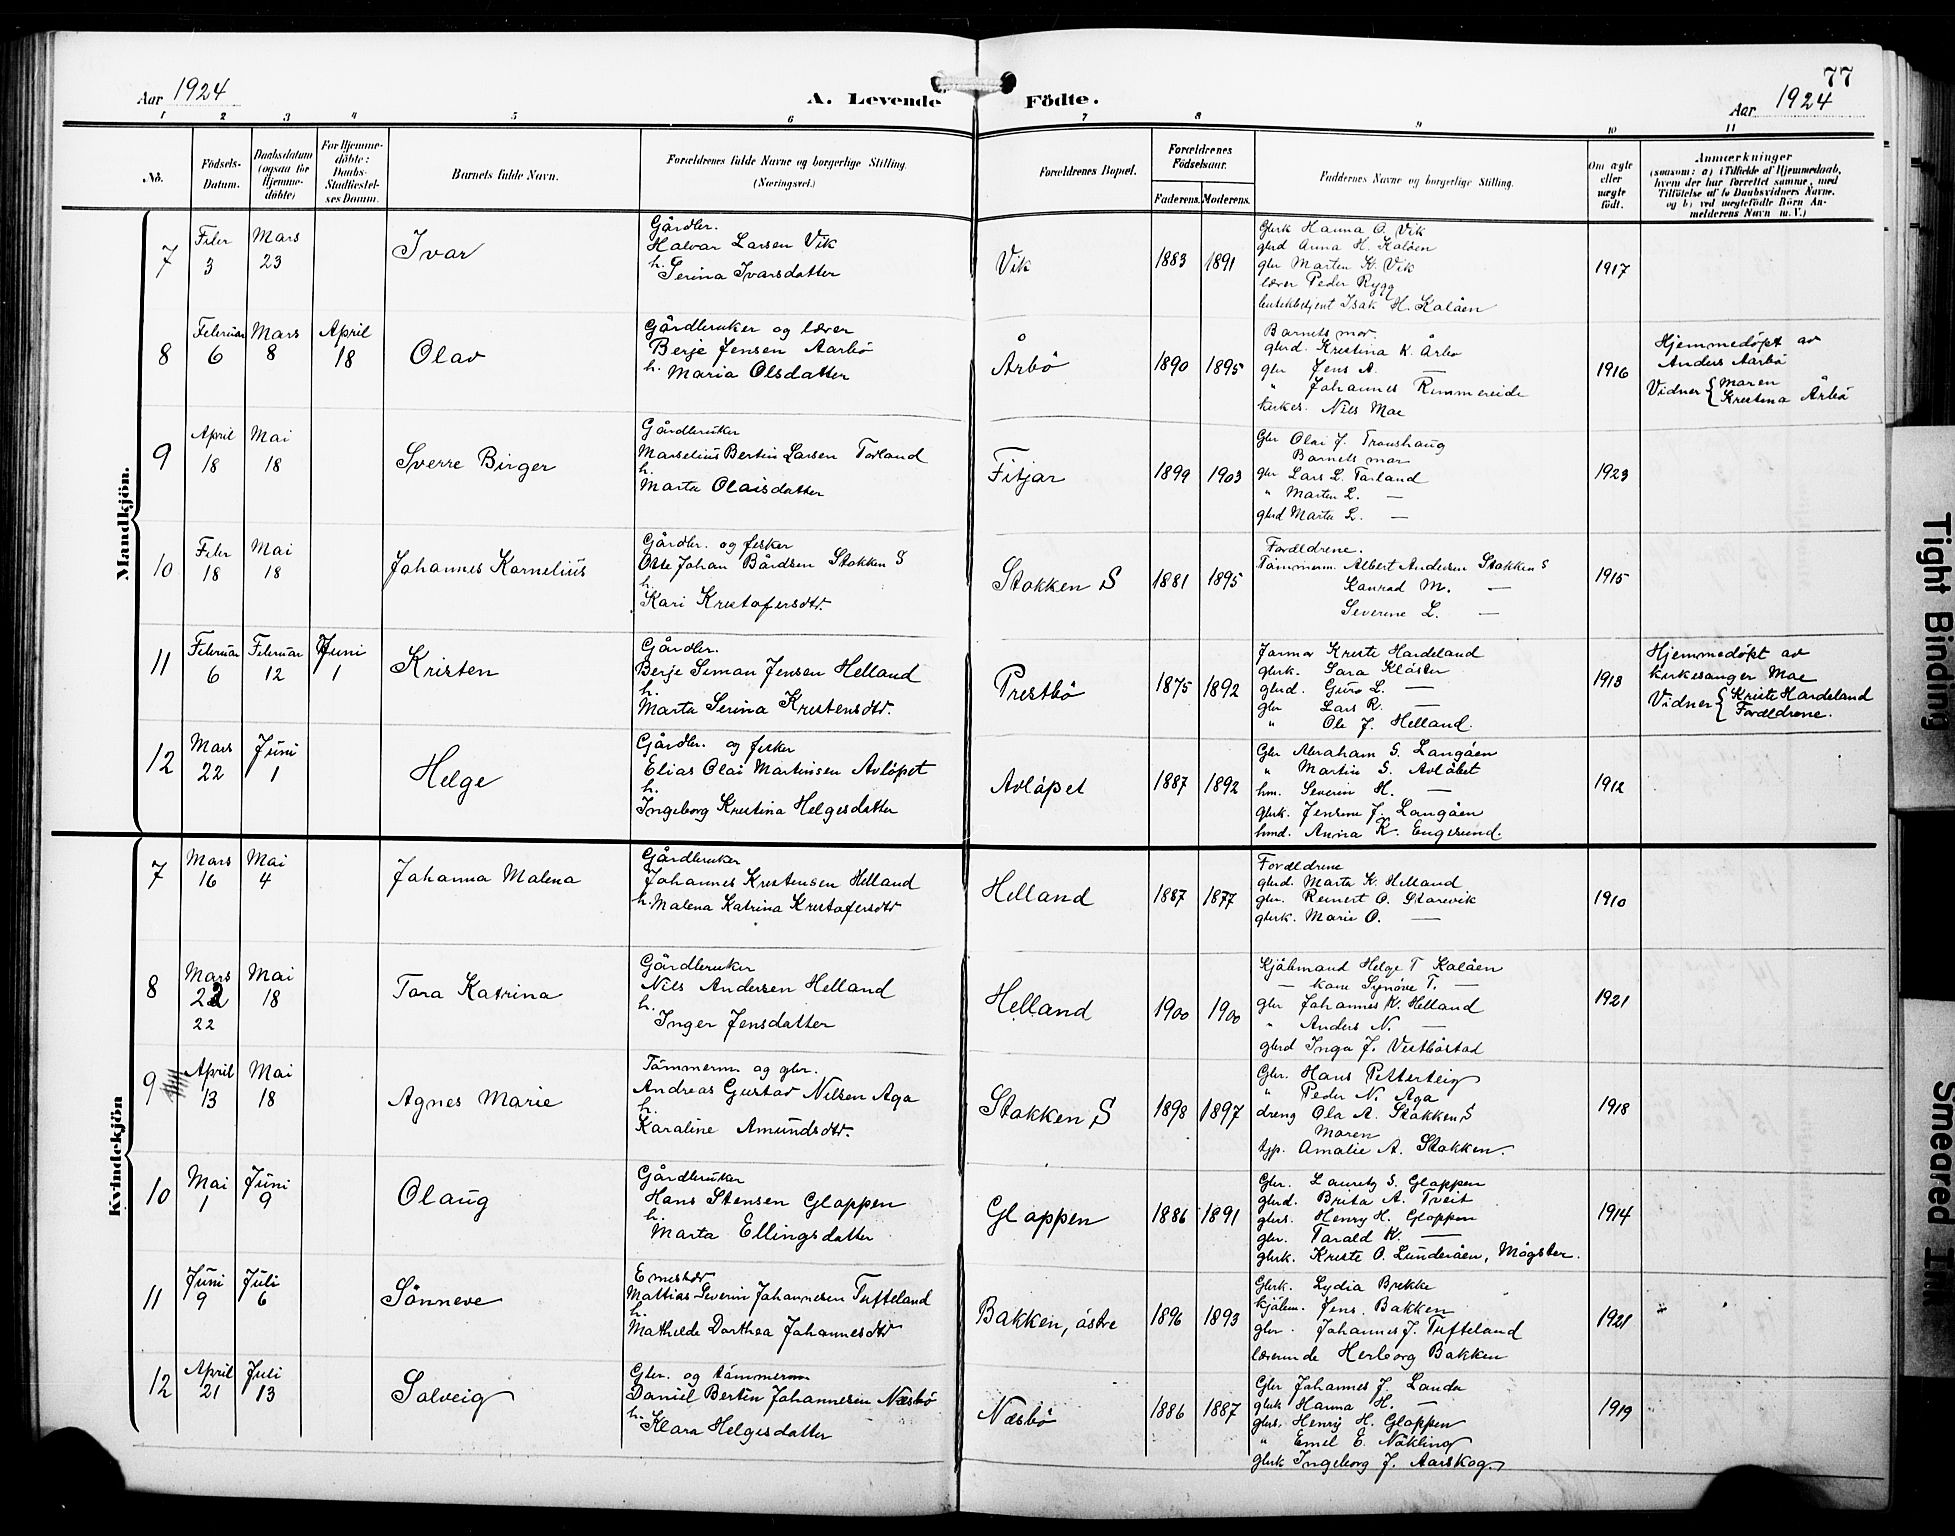 77
Aar 1924
A. Levende Födte.
Aar 1924
1 2 3 4 5 6 7 8 9 10 11
No.
Födsels-
Datum.
Daabsdatum
(ogsaa for
Hjemme-
döbte)
For Hjemme-
döbte:
Daabs-
Stadfæstel-
ses Datum.
Barnets fulde Navn.
Forældrenes fulde Navne og borgerlige Stilling.
(Næringsvei.)
Forældrenes Bopæl.
Forældrenes
Födselsaar.
Faderens. Moderens.
Faddernes Navne og borgerlige Stilling.
Om ægte
eller
uægte
født.
Anmærkninger
(saasom: a) i Tilfælde af Hjemmedaab,
hvem der har forrettet samme, med
Tilföielse af to Daabsvidners Navne.
og b) ved uægtefödte Börn An-
melderens Navn m. V.)
Mandkjön.
7
Febr
3
Mars
23
Ivar
Gårdbr.
Halvar Larsen Vik
h. Serina Ivarsdatter
Vik
1883 1891
Gbrk Hanna O. Vik
gbrd Anna H. Kalöen
gbr Marten K. Vik
lærer Peder Rygg
butikbetjent Isak H. Kalåen
1917
8
Februar
6
Mars
8
April
18
Olav
Gårdbruker og lærer
Berje Jensen Aarbö
h. Maria Olsdatter
Årbö
1890 1895
Barnets mor.
gbrd. Kristina K. Årbö
gbr Jens A. —
" Johannes Rimmereide
kirkes. Nils Moe
1916
Hjemmedöpt av
Anders Aarbö
Vidner { Maren
Kristina Årbö
9
April
18
Mai
18
Sverre Birger
Gårdbruker
Marselius Bertin Larsen Torland
h.
Marta Olaisdatter
Fitjar
1899 1903
Gbr Olai J. Transhaug
Barnets mor
gbr Lars L. Torland
" Marten L. —
gbrd Marta L. —
1923
10
Febr
18
Mai
18
Johannes Kornelius
Gårdbr. og fisker
Otte Johan Bårdsen Stokken S
h.
Kari Kristofersdtr.
Stokken S
1881 1895
Foreldrene.
Tömmerm. Albert Andersen Stokken S
Konrad M. —
Severine L. —
1915
11
Februar
6
Februar
12
Juni
1
Kristen
Gårdbr.
Berje Simon Jensen Helland
h.
Marta Serina Kristensdtr.
Prestbö
1875 1892
Jormor Kriste Hardeland
gbrk. Sara Kloster
gbrd. Guro L. —
gbr Lars R. —
" Ole J. Helland.
1913
Hjemmedöpt av
kirkesanger Moe
Vidner { Kriste Hardeland
Foreldrene.
12
Mars
22
Juni
1
Helge
Gårdbr. og fisker
Elias Olai Martinsen Avlöpet
h.
Ingeborg Kristina Helgesdatter
Avlöpet
1887 1892
Gbr Abraham S. Langåen
" Martin S. Avlöbet
hm. Severin H. —
gbrk. Jensine J. Langåen
hmd. Anna K. Engesund.
1912
Kvindekjön
7
Mars
16
Mai
4
Johanna Malena
Gårdbruker
Johannes Kristensen Helland
h. Malena Katrina Kristofersdtr
Helland
1887 1877
Foreldrene
gbrd. Marta K. Helland
gbr. Reinert O. Storevik
gbrk. Marie O. —
1910
8
Mars
22
22
Mai
18
Tora Katrina
Gårdbruker
Nils Andersen Helland
h.
Inger Jensdatter
Helland
1900 1900
Kjöbmand Helge T Kalåen
— kone Synöve T. —
gbr Johannes K. Helland
" Anders N. —
gbrd Inga J. Vestböstad
1921
9
April
13
Mai
18
Agnes Marie
Tömmerm. og gbr.
Andreas Gustav Nilsen Aga
h.
Karaline Amundsdtr.
Stokken S
1898 1897
Gbr. Hans Petterteig
" Peder N. Aga
dreng Ola A. Stokken S
Maren
typ. Amalie A. Stokken.
1918
10
Mai
1
Juni
9
Olaug
Gårdbruker
Hans Stensen Gloppen
h.
Marta Ellingsdatter
Gloppen
1886 1891
Gbr. Lauretz S. Gloppen
gbrd. Brita A. Tveit
gbrs. Henry H. Gloppen
gbr. Torald K. —
gbrk. Kriste O. Lunderåen, Mögster.
1914
11
Juni
9
Juli
6
Sönneve
Emestdr
Mattias Severin Johannesen Tufteland
h.
Mathilde Dorthea Johannesdtr
Bakken, östre
1896 1893
Gbrk. Lydia Brekke
kjöbm. Jens Bakken
gbr. Johannes J. Tufteland
lærerinde Herborg Bakken
1921
12
April
21
Juli
13
Solveig
Gbr. og tömmerm
Daniel Bertin Johannesen Næsbö
h. Klara Helgesdatter
Næsbö
1886 1887
Gbr Johannes J. Landa
gbrk Hanna H. —
gbrs. Henry H. Gloppen
" Emil E. Nökling
gbrk Ingeborg J. Aarskog.
1919
Tight Binding
Smeared Ink